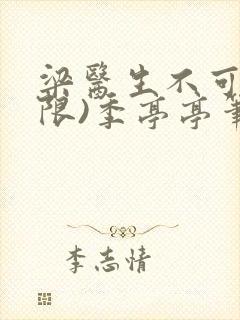 梁医生不可
限)季亭亭筆
李志情